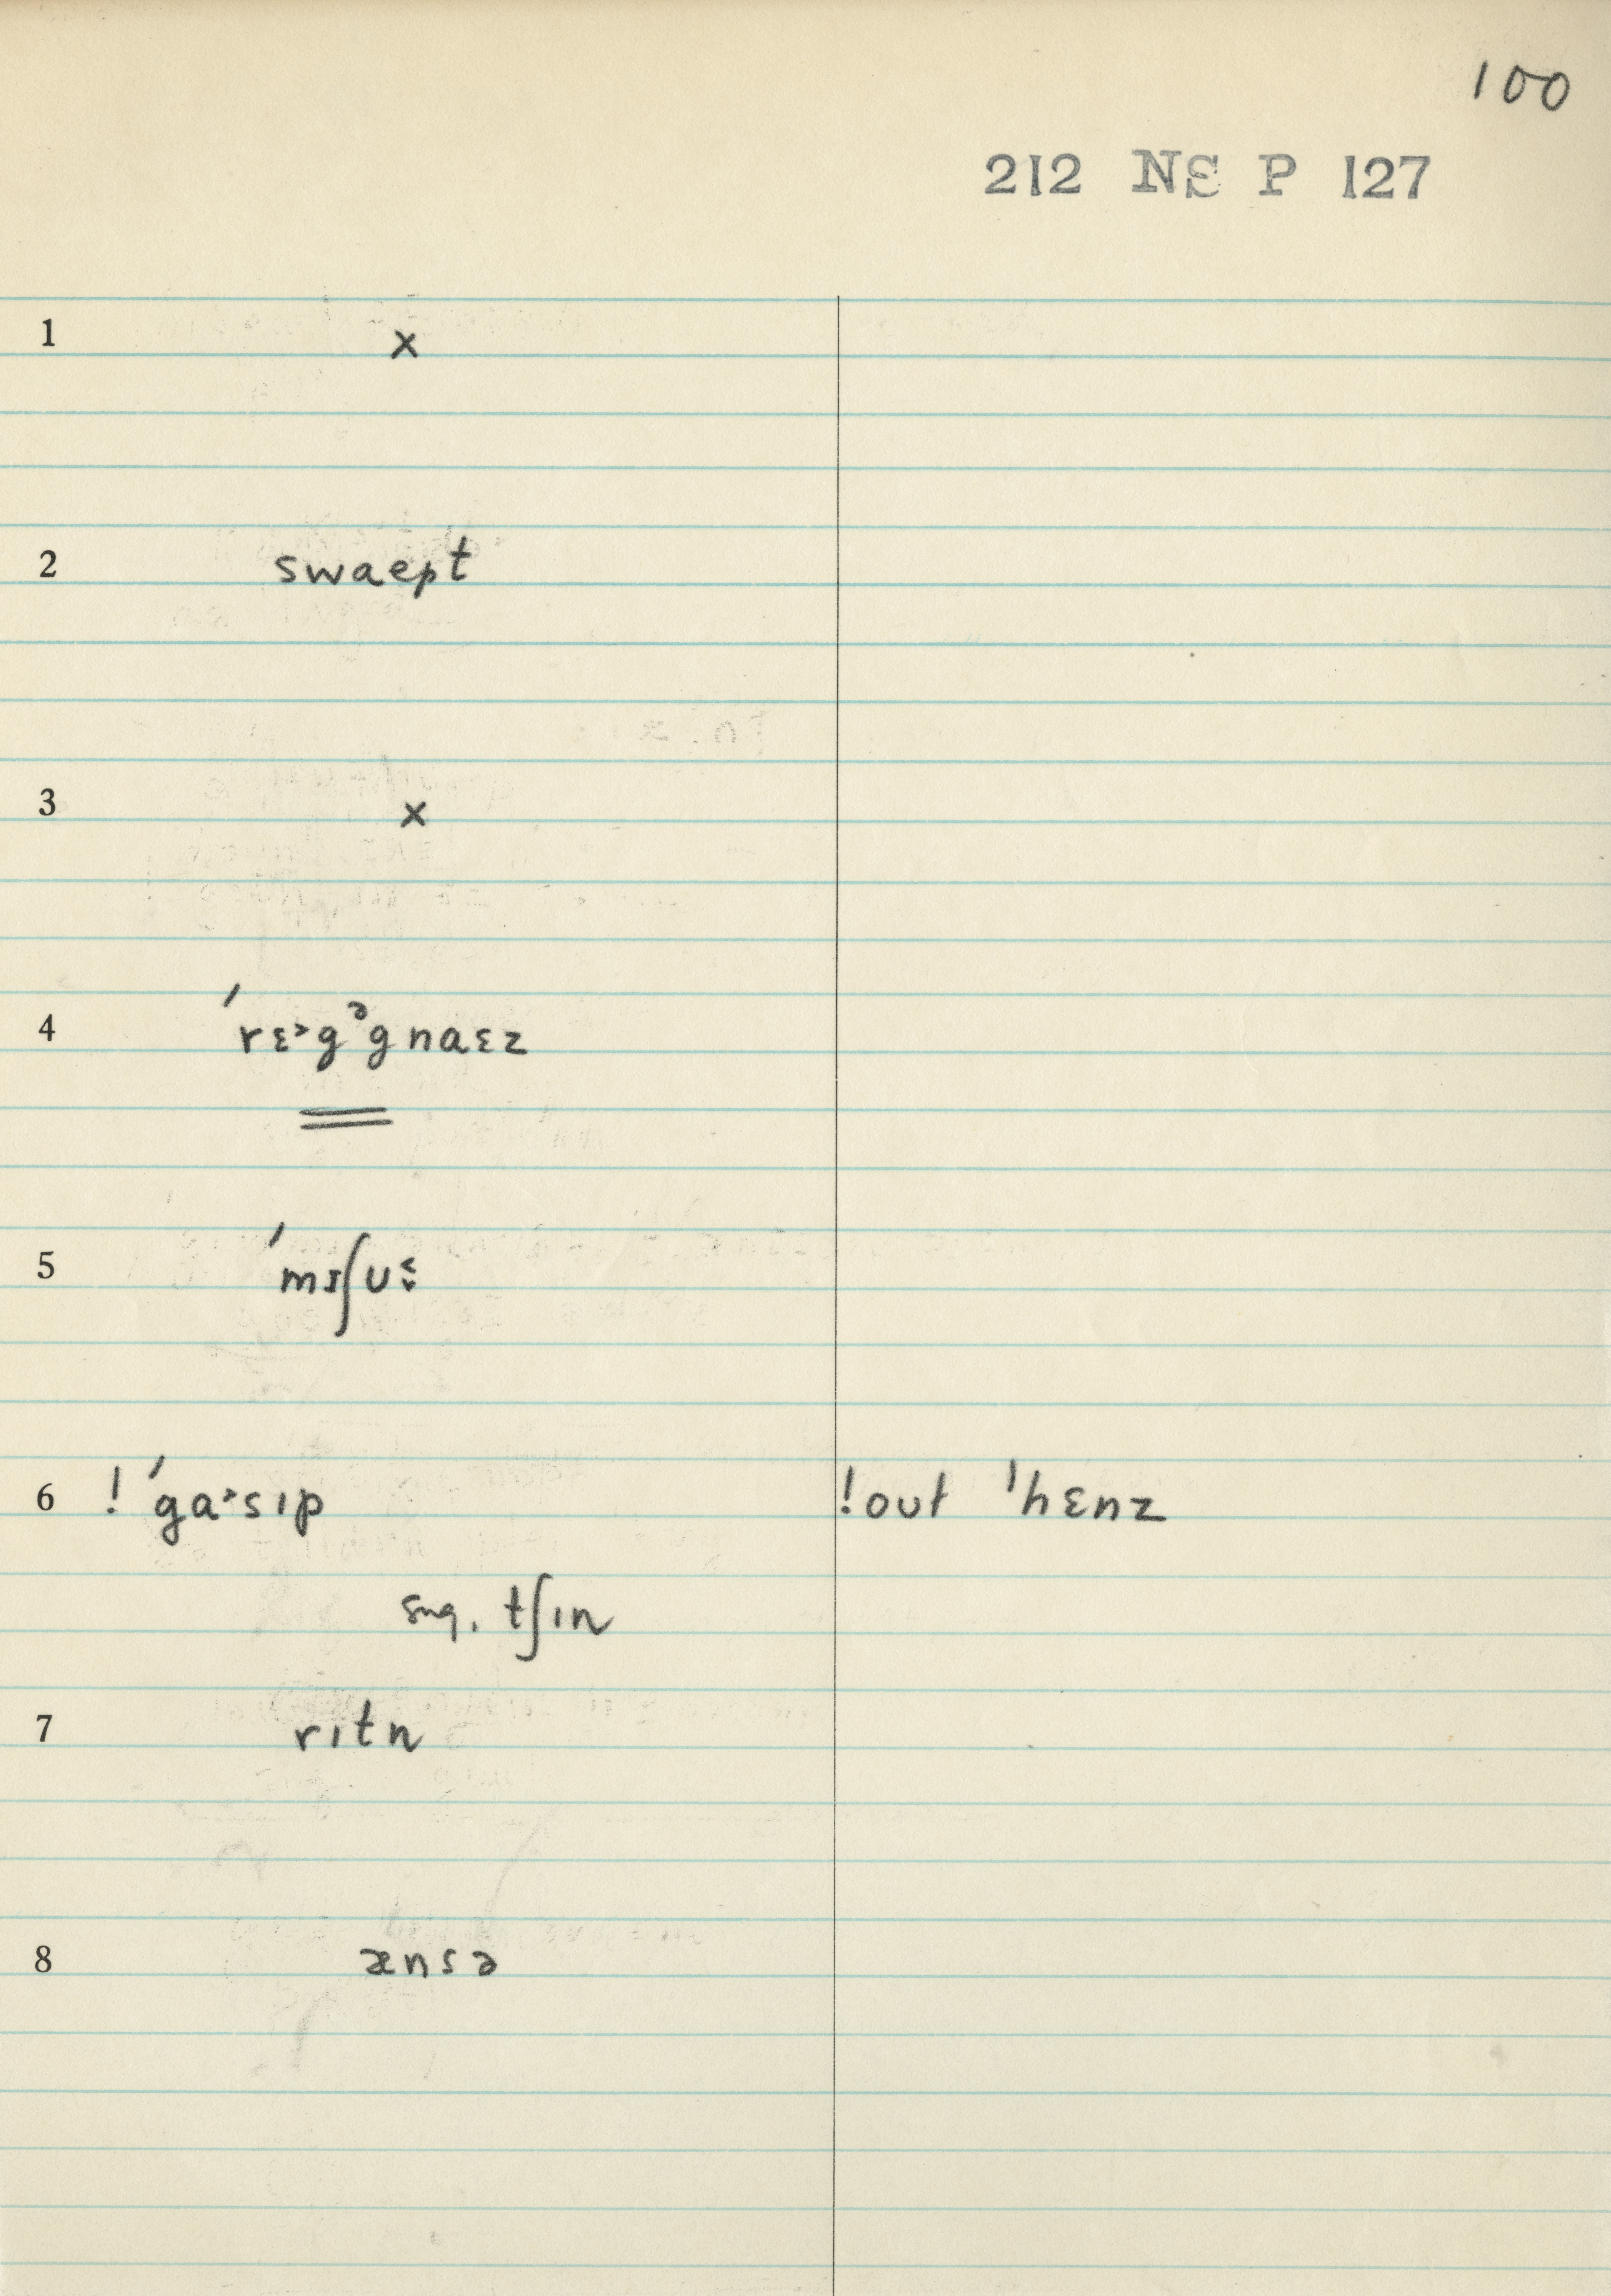 100
212 NS P 127
1 x
2 swaept
3 x
4 ˈrɛ˃gᵊgnaɛz
5 ˈmɪʃu
6 ! ˈga˃sıp !out ˈhɛnz
sng. tʃın
7 rıtn
8 ænsə